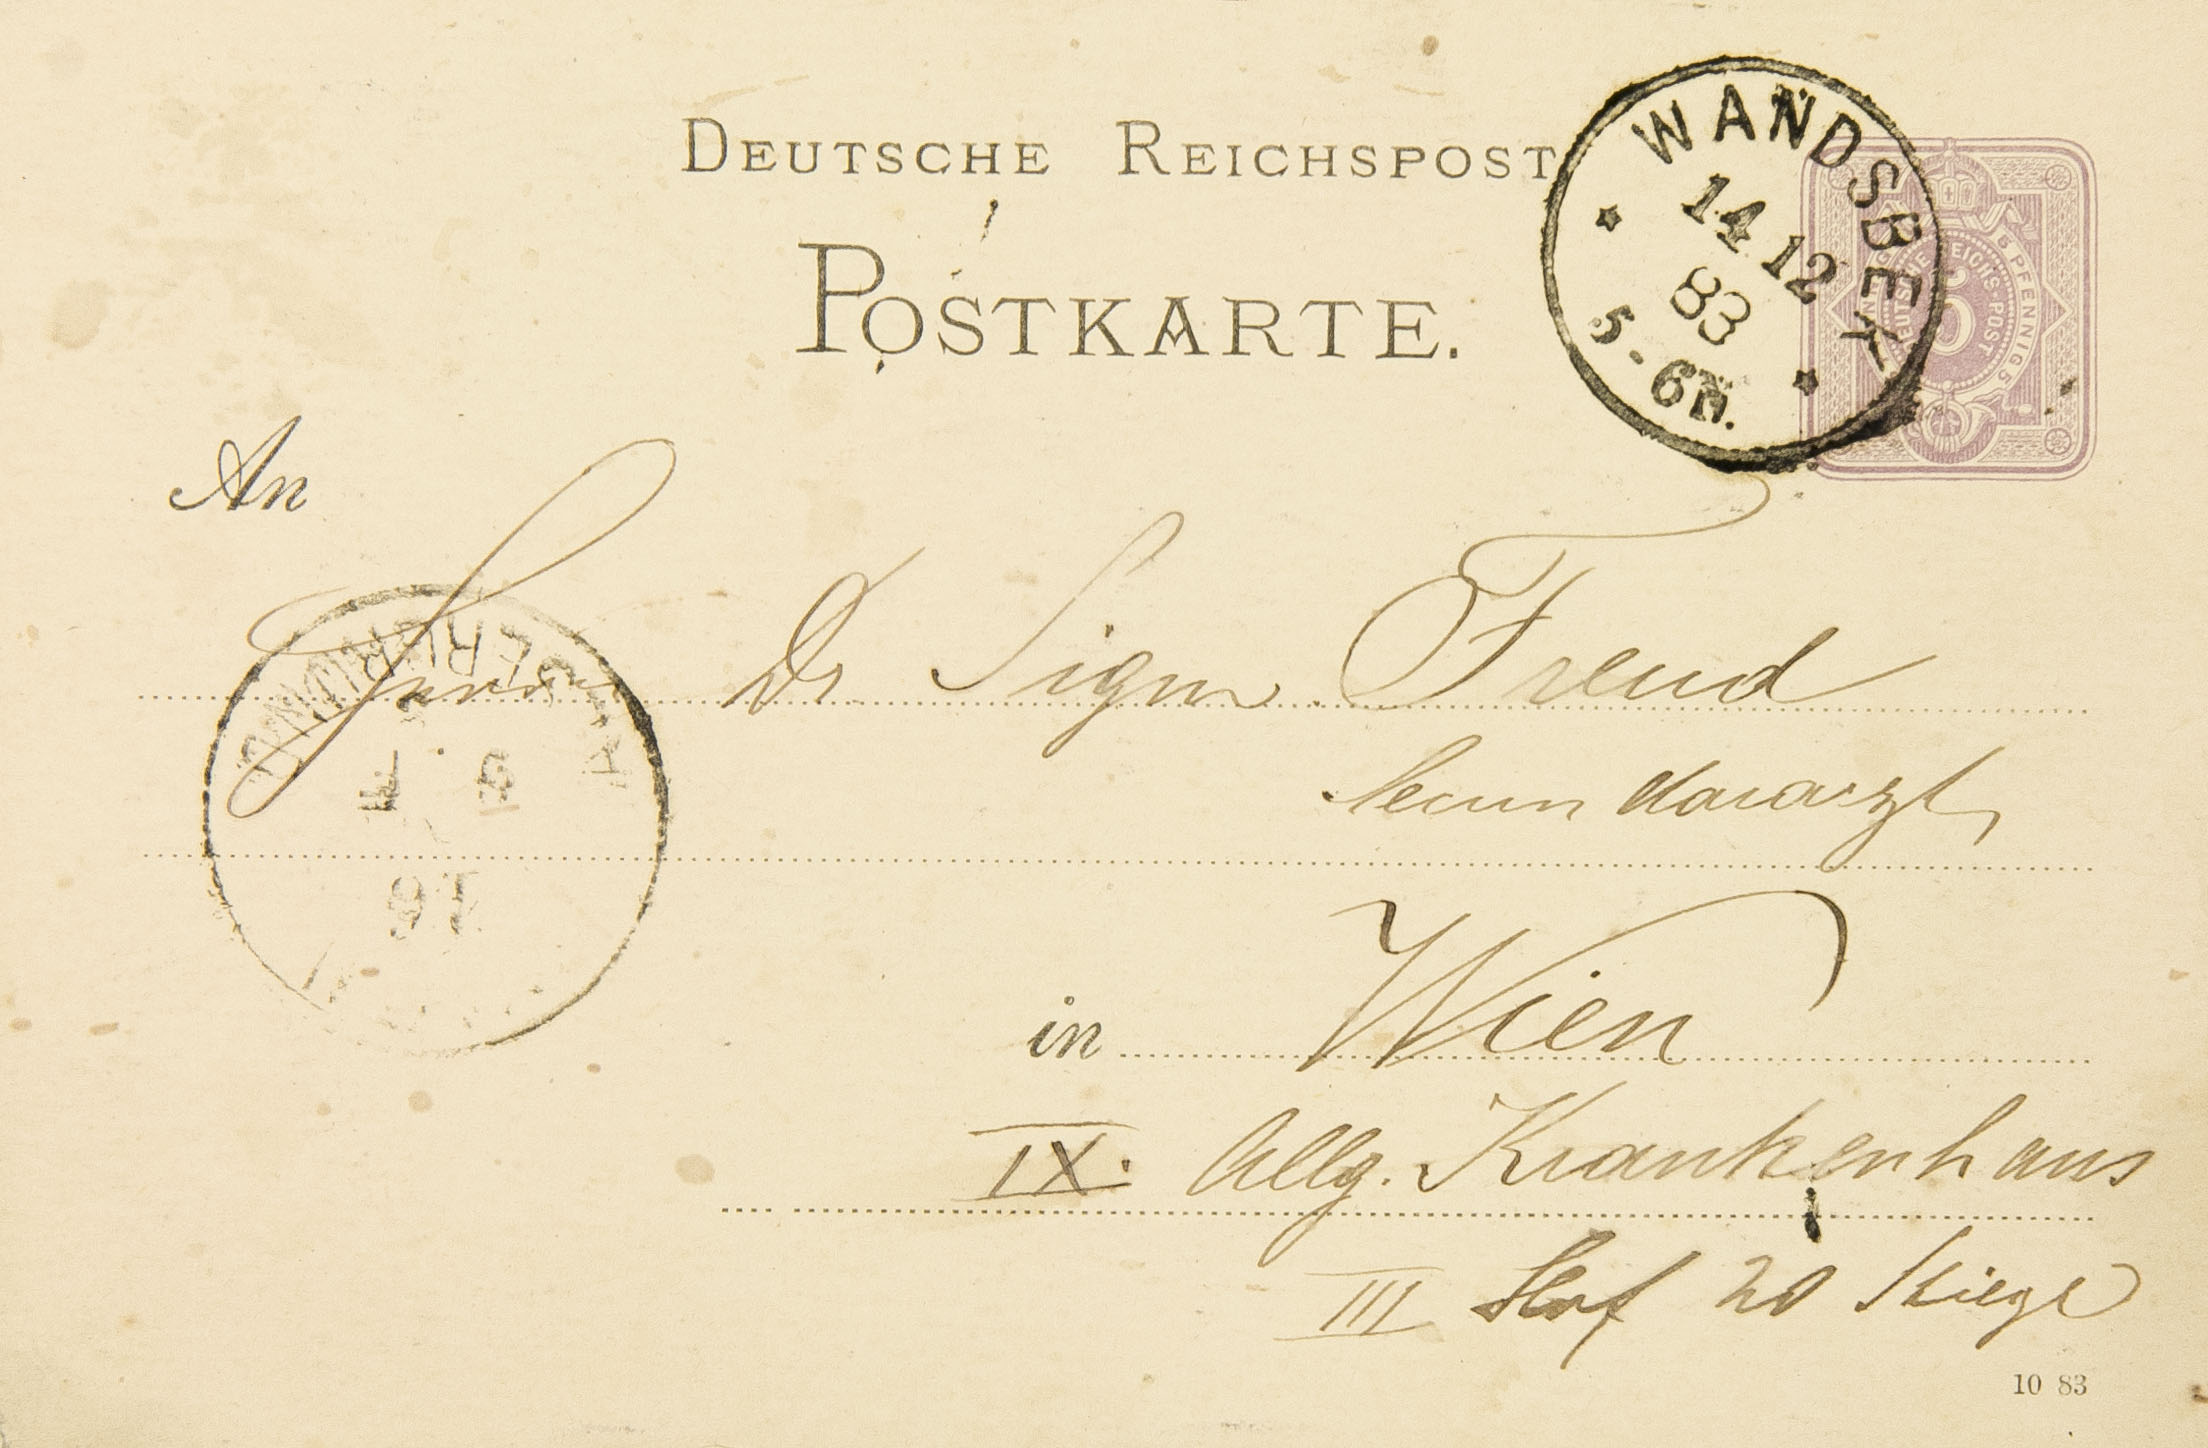 DEUTSCHE REICHSPOST
POSTKARTE.
WANDSBEK
14 12
83
5-6N.
5 PFENNIG 5
An
Herrn Dr Sigm. Freud
Secundararzt
in Wien
IX. Allg. Krankenhaus
III Hof 20 Stiege
10 83